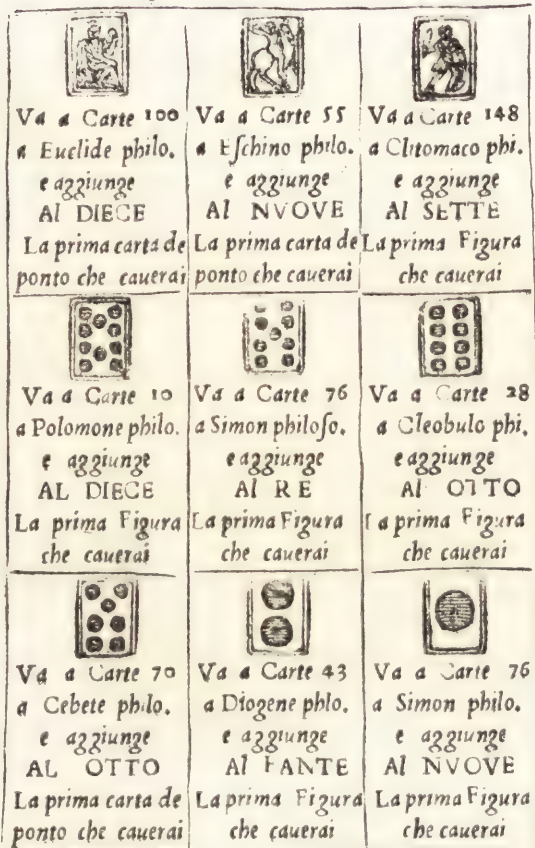 Va a Carte 100
a Euclide philo.
e aggiunge
Al DIECE
La prima carta de
ponto che cauerai
Va a Carte 55
a Eſchino philo.
e aggiunge
Al NVOVE
La prima carta de
ponto che cauerai
Va a Carte 148
a Clitomaco phi.
e aggiunge
Al SETTE
La prima Figura
che cauerai
Va a Carte 10
a Polomone philo.
e aggiunge
AL DIECE
La prima Figura
che cauerai
Va a Carte 76
a Simon philoſo.
e aggiunge
Al RE
La prima Figura
che cauerai
Va a Carte 28
a Cleobulo phi,
e aggiunge
Al OTTO
La prima Figura
che cauerai
Va a Carte 70
a Cebete philo.
e aggiunge
AL OTTO
La prima carta de
ponto che cauerai
Va a Carte 43
a Diogene phlo.
e aggiunge
Al FANTE
La prima Figura
che cauerai
Va a Carte 76
a Simon philo.
e aggiunge
Al NVOVE
La prima Figura
che cauerai